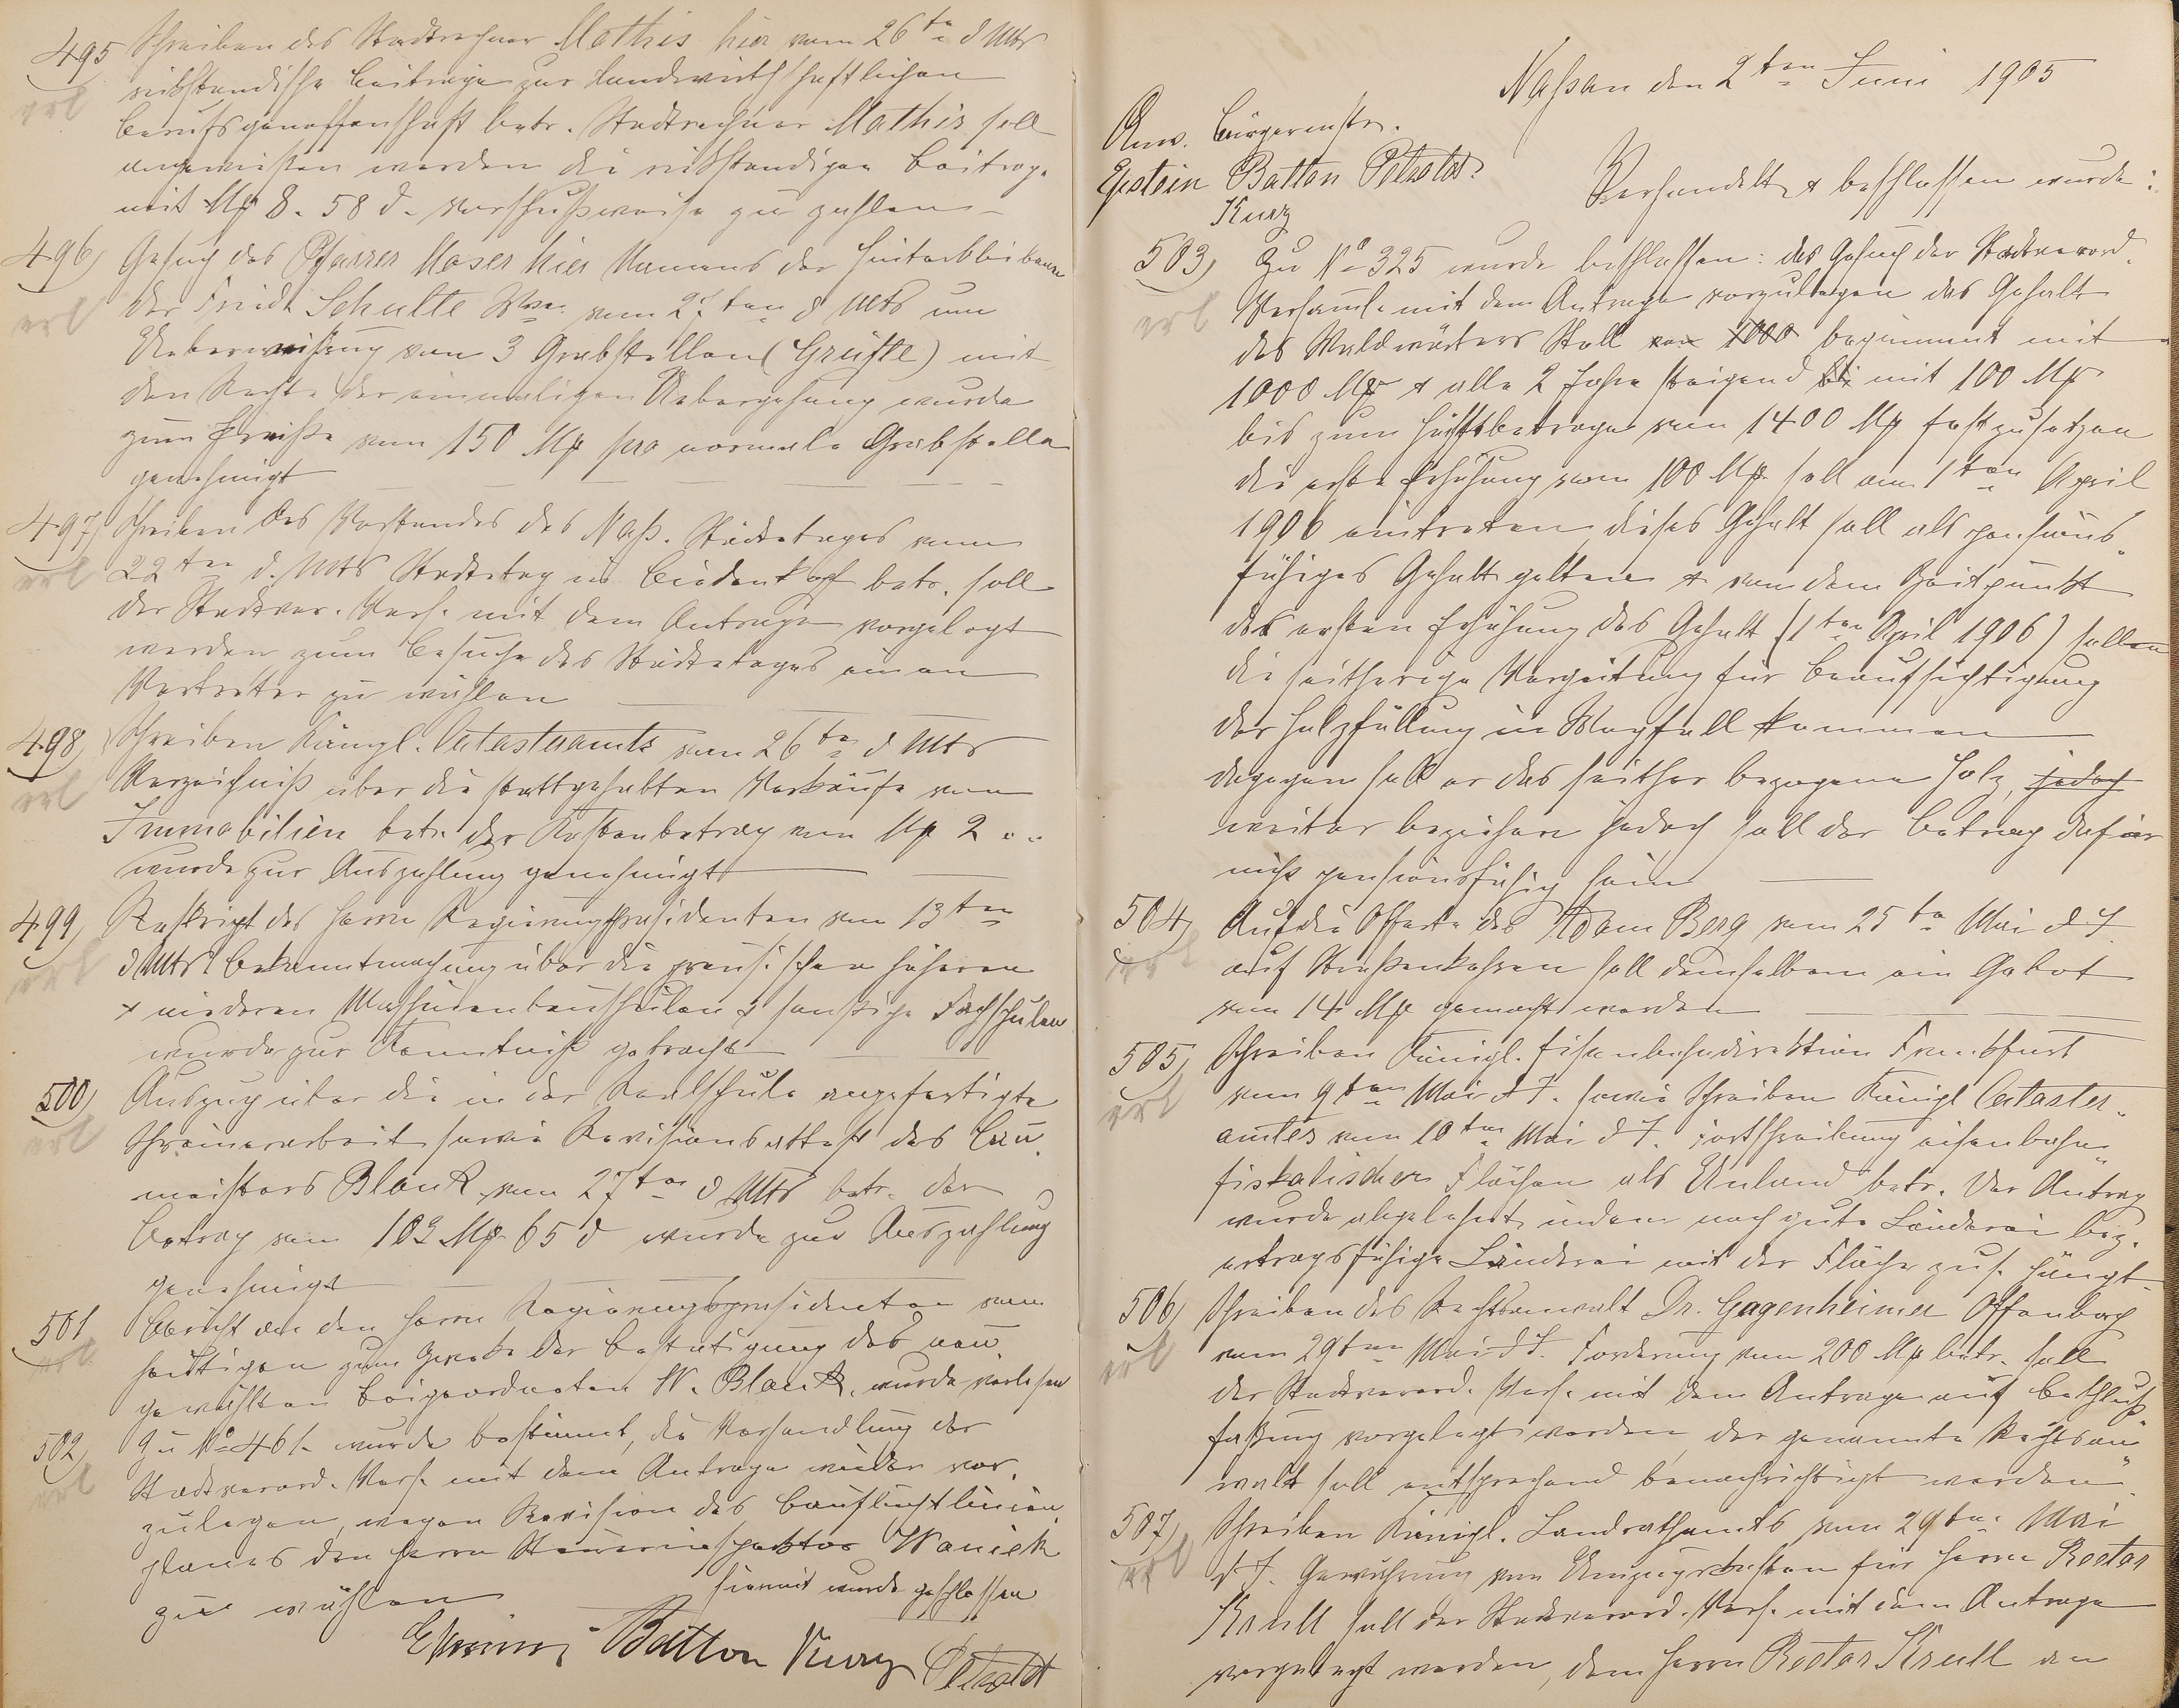 495 Schreiben des Stadtrechner Mathis hier vom 26ten d Mts
erl rückständische Beiträge zur Landwirthschaftlichen
Berufsgenossenschaft betr. Stadtrechner Mathis soll
angewiesen werden die rückständigen Beiträge
mit Mk 8. 58 d. vorschußweise zu zahlen
496) Gesuch des Pfarrer Moser hier Namens der Hinterbliebenen
erl der Friedr. Schulte Wwe. vom 27ten d Mts um
Ueberweisung von 3 Grabstellen (Grüfte) mit
den Rechte der einmaligen Uebergehung wurde
zum Preiße von 150 Mk pro normale Grabstelle
genehmigt
497) Schreiben des Vorstandes des Naß. Städtetages vom
erl 22ten d. Mts Städtetag in Biedenkopf betr. soll
der Stadtver. Vers. mit dem Antrage vorgelegt
werden zum Besuche des Städtetages einen
Vertreter zu wählen
498) Schreiben Königl. Catasteramts vom 26ten d Mts
erl Verzeichniß über die stattgehabten Verkäufe von
Immobilien betr. der Kostenbetrag von Mk 2 ..
wurde zur Auszahlung genehmigt
499) Reskript des Herrn Regierungspräsidenten vom 13ten
erl d Mts Bekanntmachung über die preusischen höheren
& niederen Maschinenbauschulen & sonstige Fachschulen
wurde zur Kenntniß gebracht
500) Auszug über die in der Realschule angefertigte
erl Schreinerarbeit sowie Revisionsattest des Bau-
meisters Blank vom 27ten d Mts betr. der
Betrag von 103 Mk 65 d wurde zur Auszahlung
genehmigt
501 Bericht an den Herrn Regierungspräsidenten vom
erl heutigen zum Zwecke der Bestätigung des neu-
gewählten Beigeordneten W. Blank, wurde verlesen
502) Zu No 461. wurde bestimmt, die Verhandlung der
erl Stadtverord. Vers. mit dem Antrage wieder vor-
zulegen, wegen Revision des Baufluchtlinien-
planes den Herrn Steuerinspektor Waniek
zu wählen
hiermit wurde geschlossen
Batton Kurz Petzold
Naßau den 2ten Juni 1905
Anw. Bürgermstr.
Epstein Batton Petzold
Kurz
Verhandelt & beschlossen wurde:
503) Zu No 325 wurde beschlossen: das Gesuch der Stadtverord.
erl Versaml. mit dem Antrage vorzulegen das Gehalt
des Waldwärters Stoll von 1000 beginnend mit
1000 Mk & alle 2 Jahre steigend bis mit 100 Mk
bis zum Höchstbetrage von 1400 Mk festzusetzen
die erste Erhöhung von 100 Mk soll am 1ten April
1906 eintreten dieses Gehalt soll als pensions-
fähiges Gehalt gelten & von dem Zeitpunkt
der ersten Erhöhung des Gehalt (1ten April 1906) sollen
die seitherige Vergütung für Beaufsichtigung
der Holzfällung in Wegfall kommen
dagegen soll er das seither bezogene Holz, jedoch
weiter beziehen jedoch soll der Betrag dafür
nicht pensionsfähig sein
504) Auf die Offerte des Adam Berg vom 25ten Mai d J.
erl auf Straßenkehren soll demselben ein Gebot
von 14 Mk gemacht werden
505) Schreiben Königl. Eisenbahndirektion Frankfurt
erl vom 9ten Mai d J. sowie Schreiben Königl Cataster-
amtes vom 10ten Mai d J. Fortschreibung eisenbahn-
fiskalischer Flächen als Unland betr. Der Antrag
wurde abgelehnt, indem noch gute Länderei bez.
ertragsfähige Länderei mit der Fläche zus. hängt
506) Schreiben des Rechtsanwalt Dr. Gagenheimer Offenbach
erl vom 29ten Mai d J. Forderung von 200 Mk betr. soll
der Stadtverord. Vers. mit dem Antrage auf Beschluß-
faßung vorgelegt werden, der genannte Rechtsan-
walt soll entsprechend benachrichtigt werden
507) Schreiben Königl. Landrathamts vom 29ten Mai
erl d J. Gewährung von Umzugskosten für Herrn Rector
Krull soll der Stadtverord. Vers. mit dem Antrage
vorgelegt werden, dem Herrn Rector Krull an